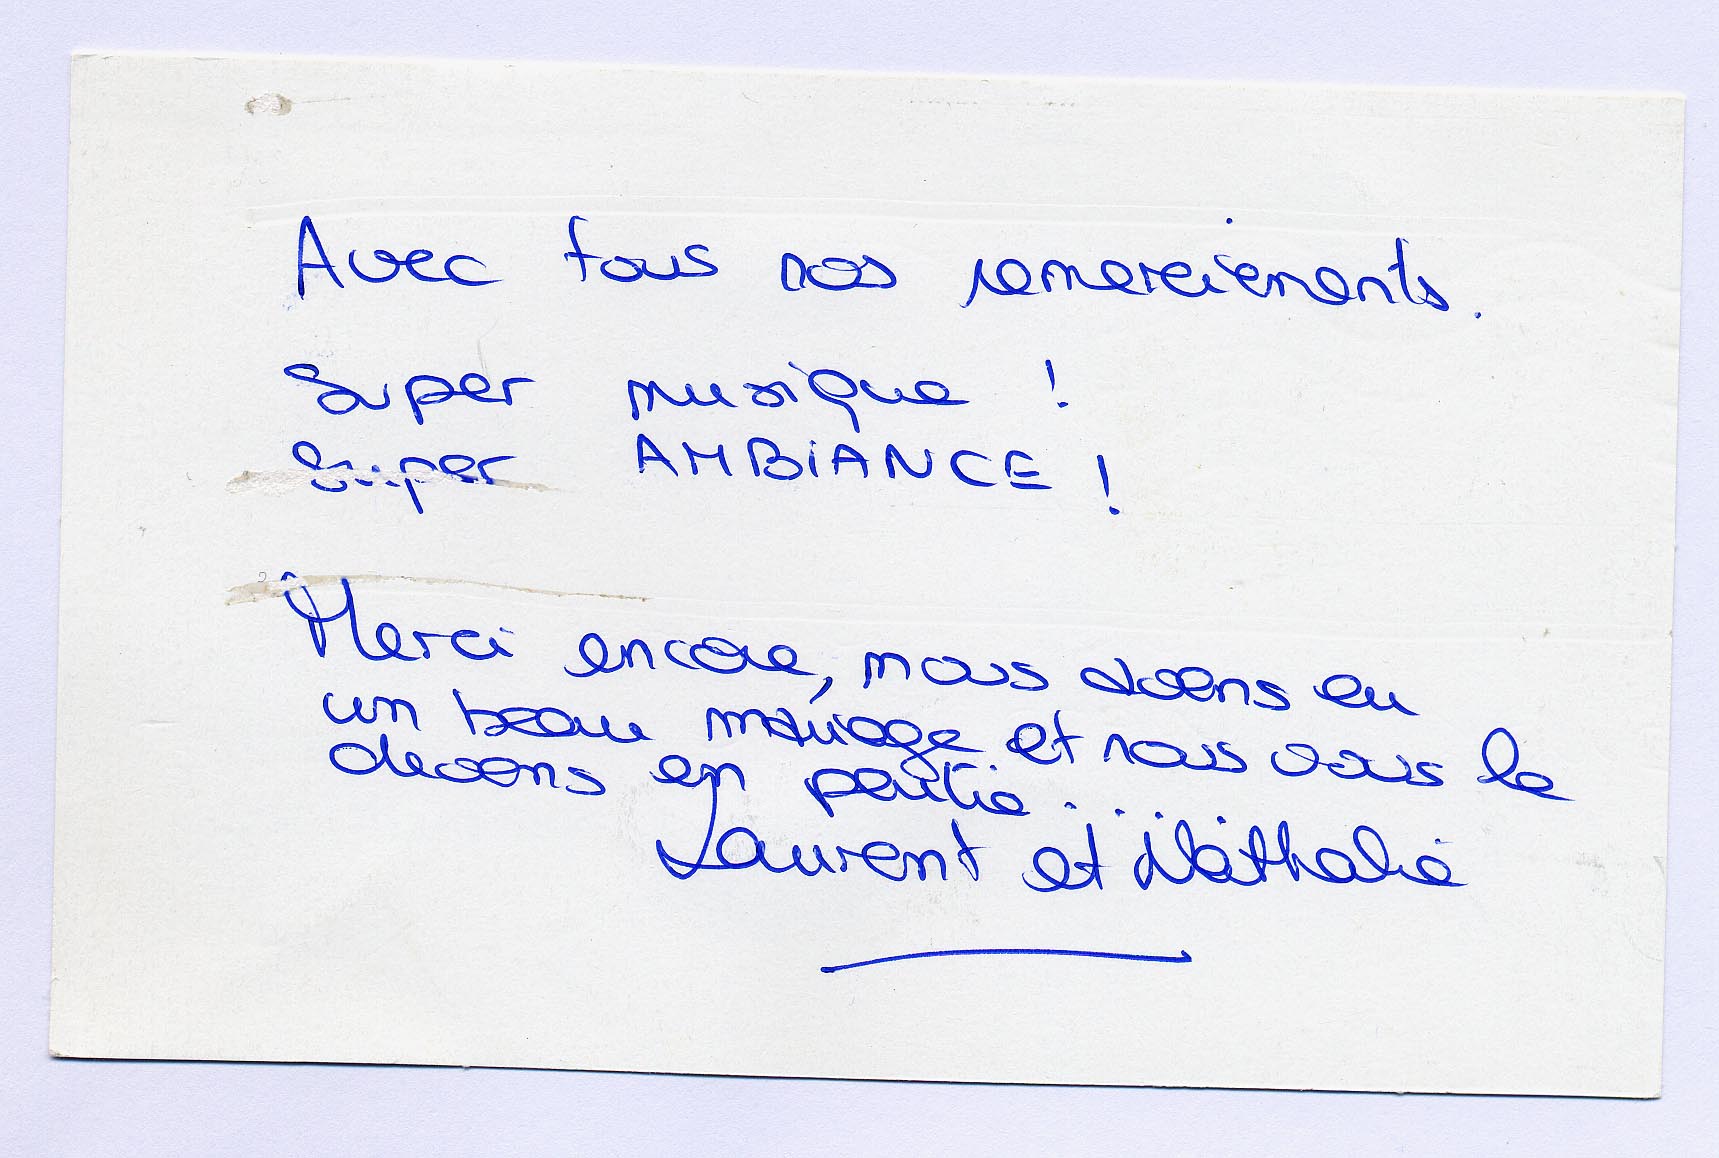 Avec tous nos remerciements.
Super musique !
Super AMBiANCE !
Merci encore, nous avons eu
un beau mariage et nous vous le
devons en partie...
Laurent et Nathalie